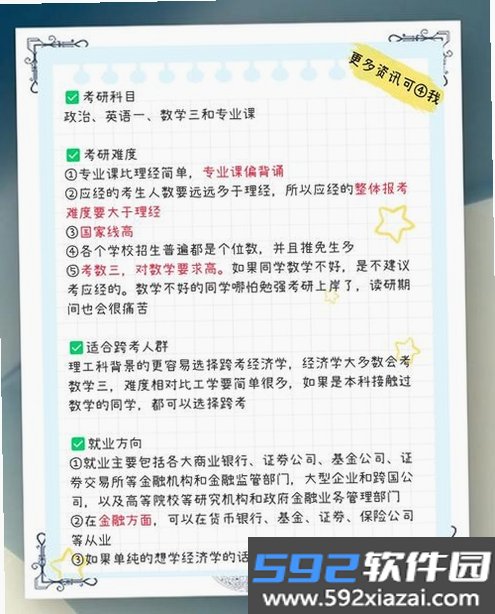 更多资讯可④我
✅考研科目
政治、英语一、数学三和专业课
✅考研难度
①专业课比理经简单，专业课偏背诵
②应经的考生人数要远远多于理经，所以应经的整体报考
难度要大于理经
③国家线高
④各个学校招生普遍都是个位数，并且推免生多
⑤考数三，对数学要求高。如果同学数学不好，是不建议
考应经的。数学不好的同学哪怕勉强考研上岸了，读研期
间也会很痛苦
✅适合跨考人群
理工科背景的更容易选择跨考经济学，经济学大多数会考
数学三，难度相对比工学要简单很多，如果是本科接触过
数学的同学，都可以选择跨考
✅就业方向
①就业主要包括各大商业银行、证券公司、基金公司、证
券交易所等金融机构和金融监管部门，大型企业和跨国公
司，以及高等院校等研究机构和政府金融业务管理部门
②在金融方面，可以在货币银行、基金、证券、保险公司
等从业
③如果单纯的想学经济学的话
592软件园
www.592xiazai.com